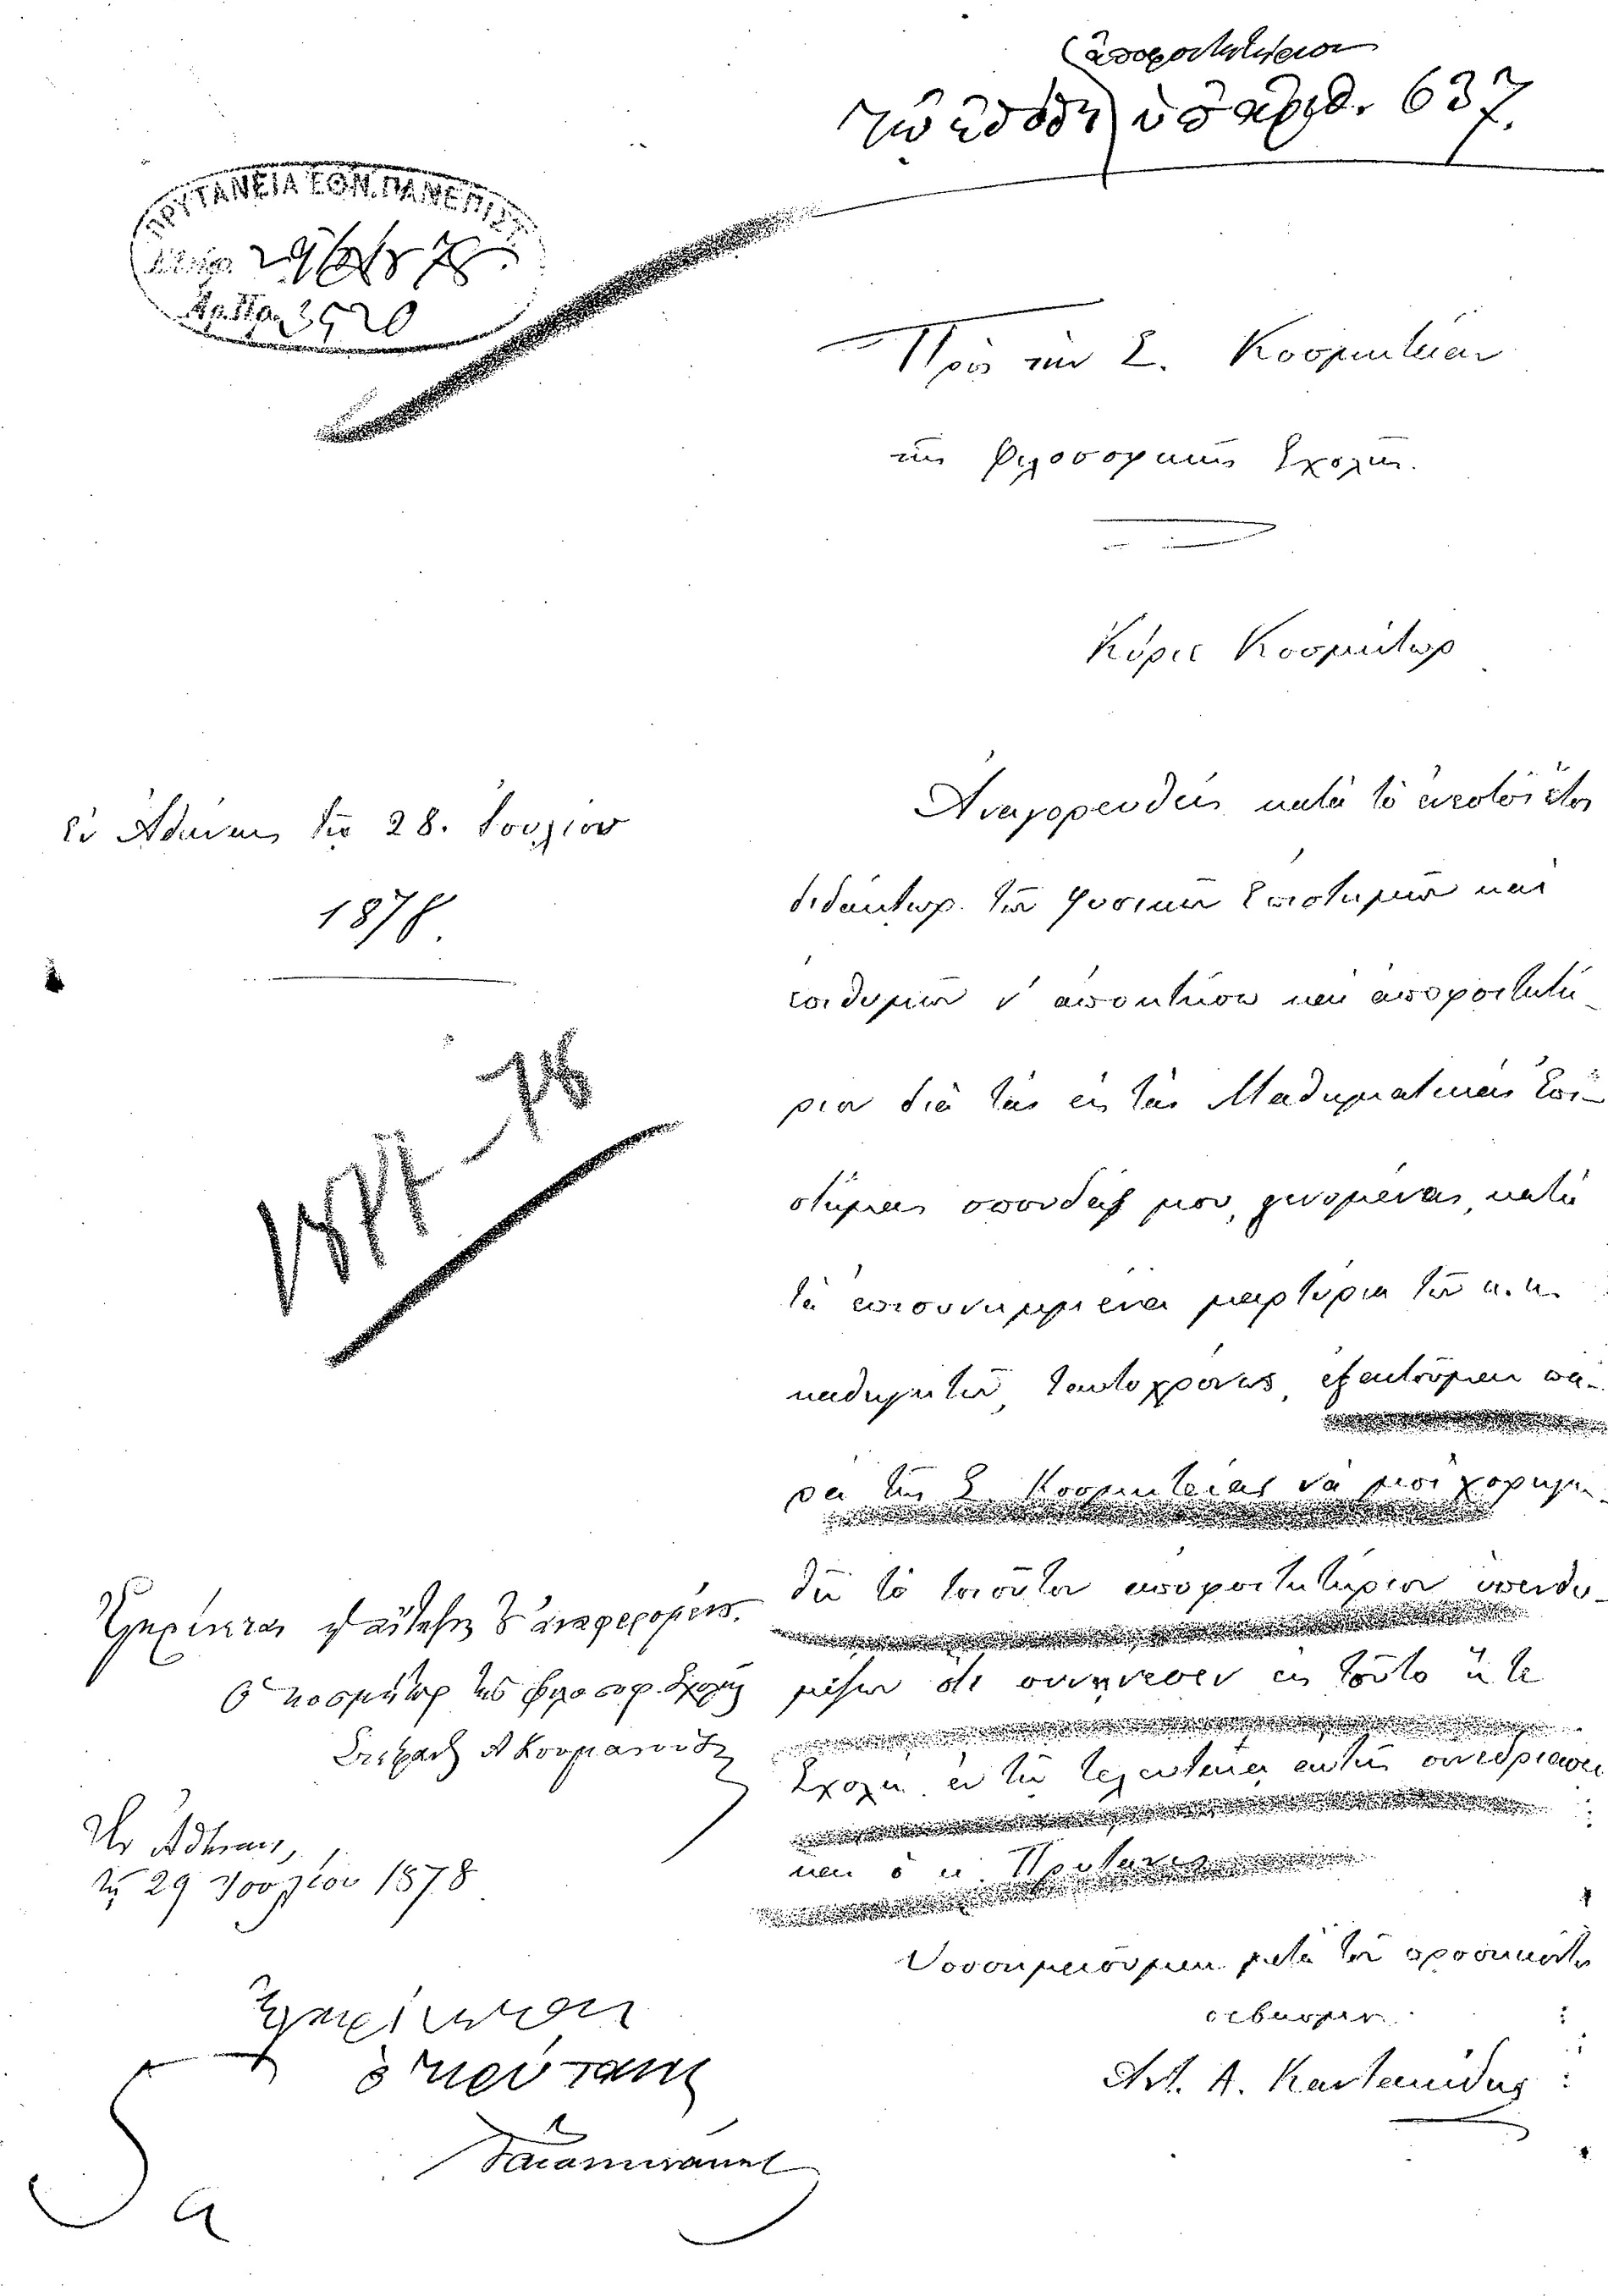 ἀπολυτήριον
ὑπ' ἀριθ. 637.
ΠΡΥΤΑΝΕΙΑ ΕΘΝ. ΠΑΝΕΠΙΣΤ.
Ἀρ. Πρ. 3520
Πρὸς τὴν Σ. Κοσμητείαν
τῆς Φιλοσοφικῆς Σχολῆς.
Κύριε Κοσμῆτορ
Ἐν Ἀθήναις τῇ 28. Ἰουλίου
1878
Ἀναγορευθεὶς κατὰ τὸ ἐνεστὸς ἔτος
διδάκτωρ τῶν φυσικῶν ἐπιστημῶν καὶ
ἐπιθυμῶν ν' ἀποκτήσω καὶ ἀποφοιτητή-
ριον διὰ τὰς εἰς τὰς Μαθηματικὰς ἐπι-
στήμας σπουδάς μου, γενομένας, κατὰ
τὰ ἐπισυνημμένα μαρτύρια τῶν κ. κ.
καθηγητῶν, ταυτοχρόνως, ἐξαιτοῦμαι πα-
ρὰ τῆς Σ. Κοσμητείας νὰ μοὶ χορηγη-
θῇ τὸ τοιοῦτον ἀποφοιτητήριον ὑπενθυ-
μίζων ὅτι συνῄνεσεν εἰς τοῦτο ἥ τε
Σχολὴ ἐν τῇ τελευταίᾳ αὐτῆς συνεδριάσει
καὶ ὁ κ. Πρύτανις
Ὑποσημειοῦμαι μετὰ τοῦ προσήκοντος
σεβασμοῦ
1877-78
Ἐγκρίνεται ἡ αἴτησις τοῦ ἀναφερομένου.
Ὁ κοσμήτωρ τῆς φιλοσοφ. Σχολῆς
Ἐν Ἀθήναις,
τῇ 29 Ἰουλίου 1878
Ἐγκρίνεται
ὁ πρύτανις